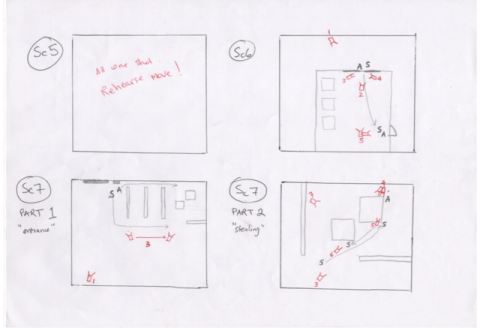 Sc5
All one shot
Rehearse move!
Sc6
A S
S
A
Sc7
PART 1
"entrance"
S A
3
1
Sc7
PART 2
"stealing"
A
S
S
S
3